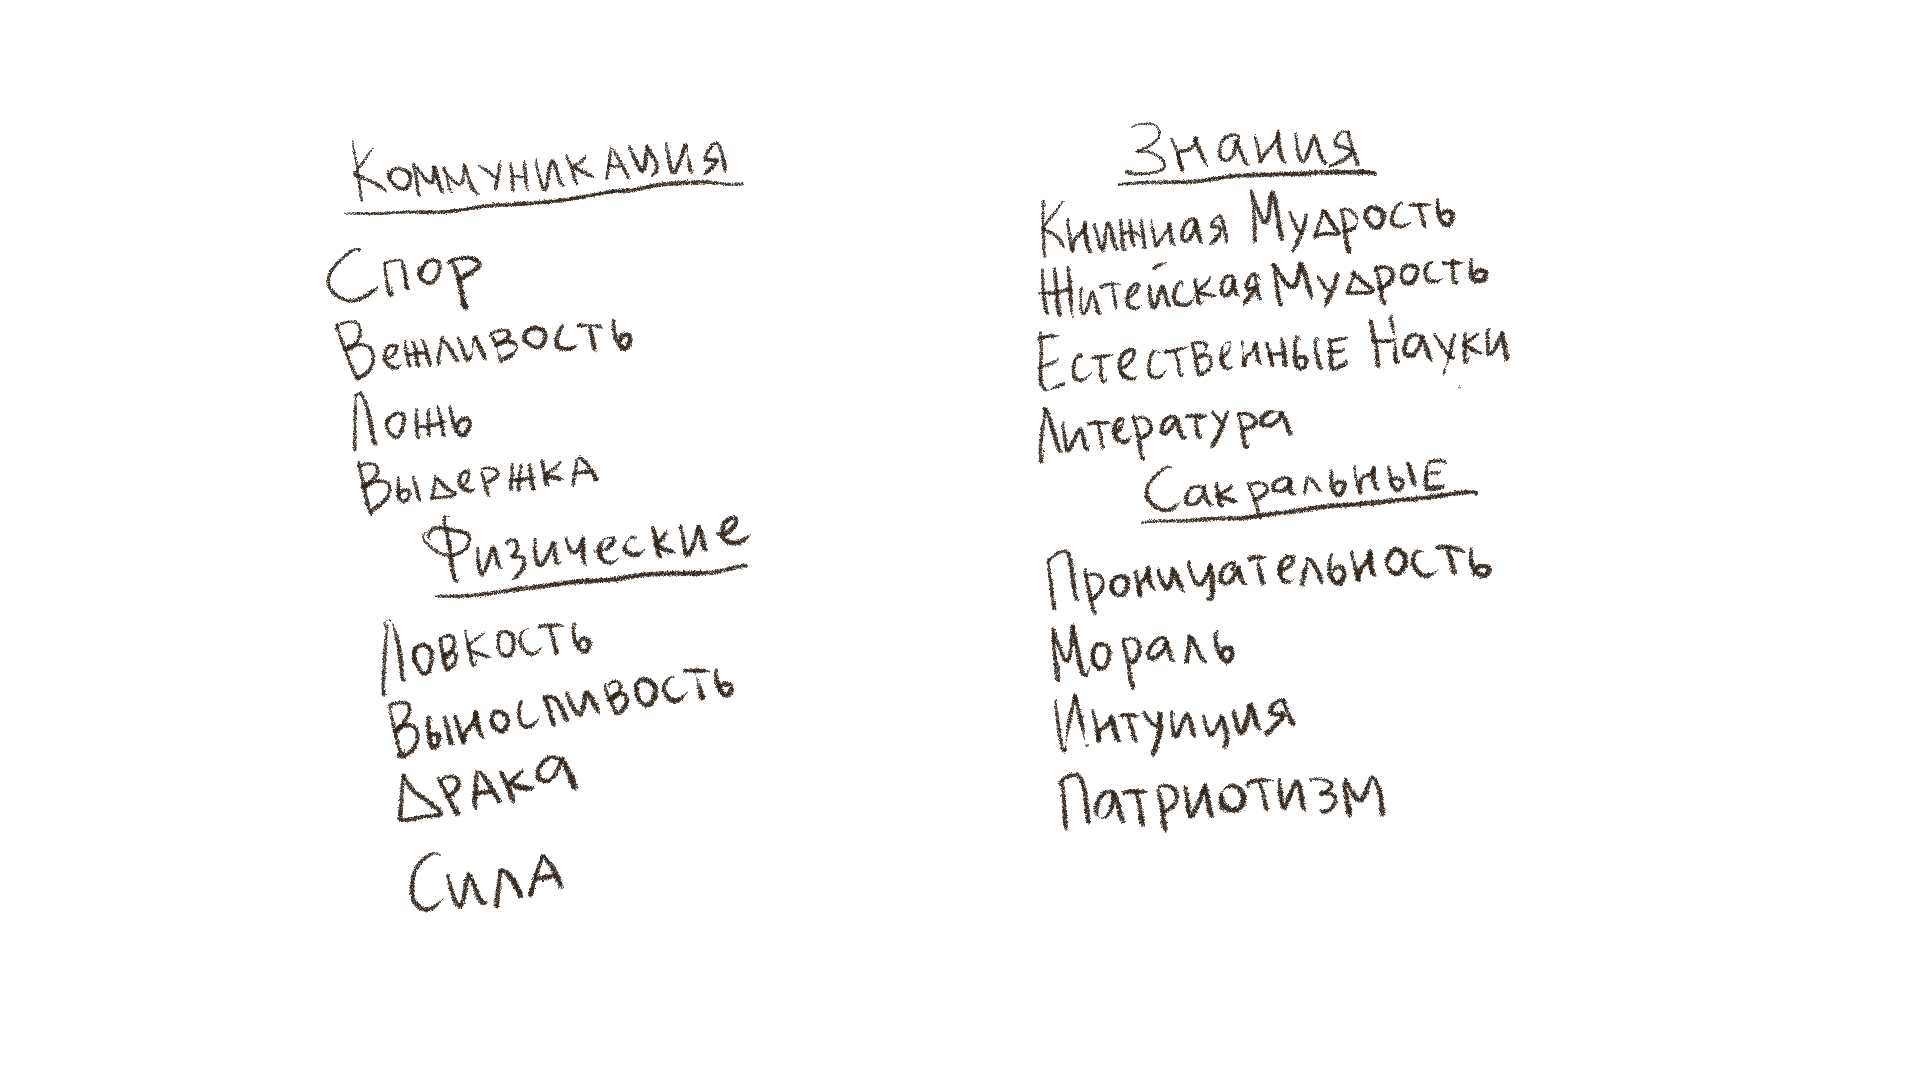 Коммуникация
Спор
Вежливость
Ложь
Выдержка
Физические
Ловкость
Выносливость
Драка
Сила
Знания
Книжная Мудрость
Житейская Мудрость
Естественные Науки
Литература
Сакральные
Проницательность
Мораль
Интуиция
Патриотизм